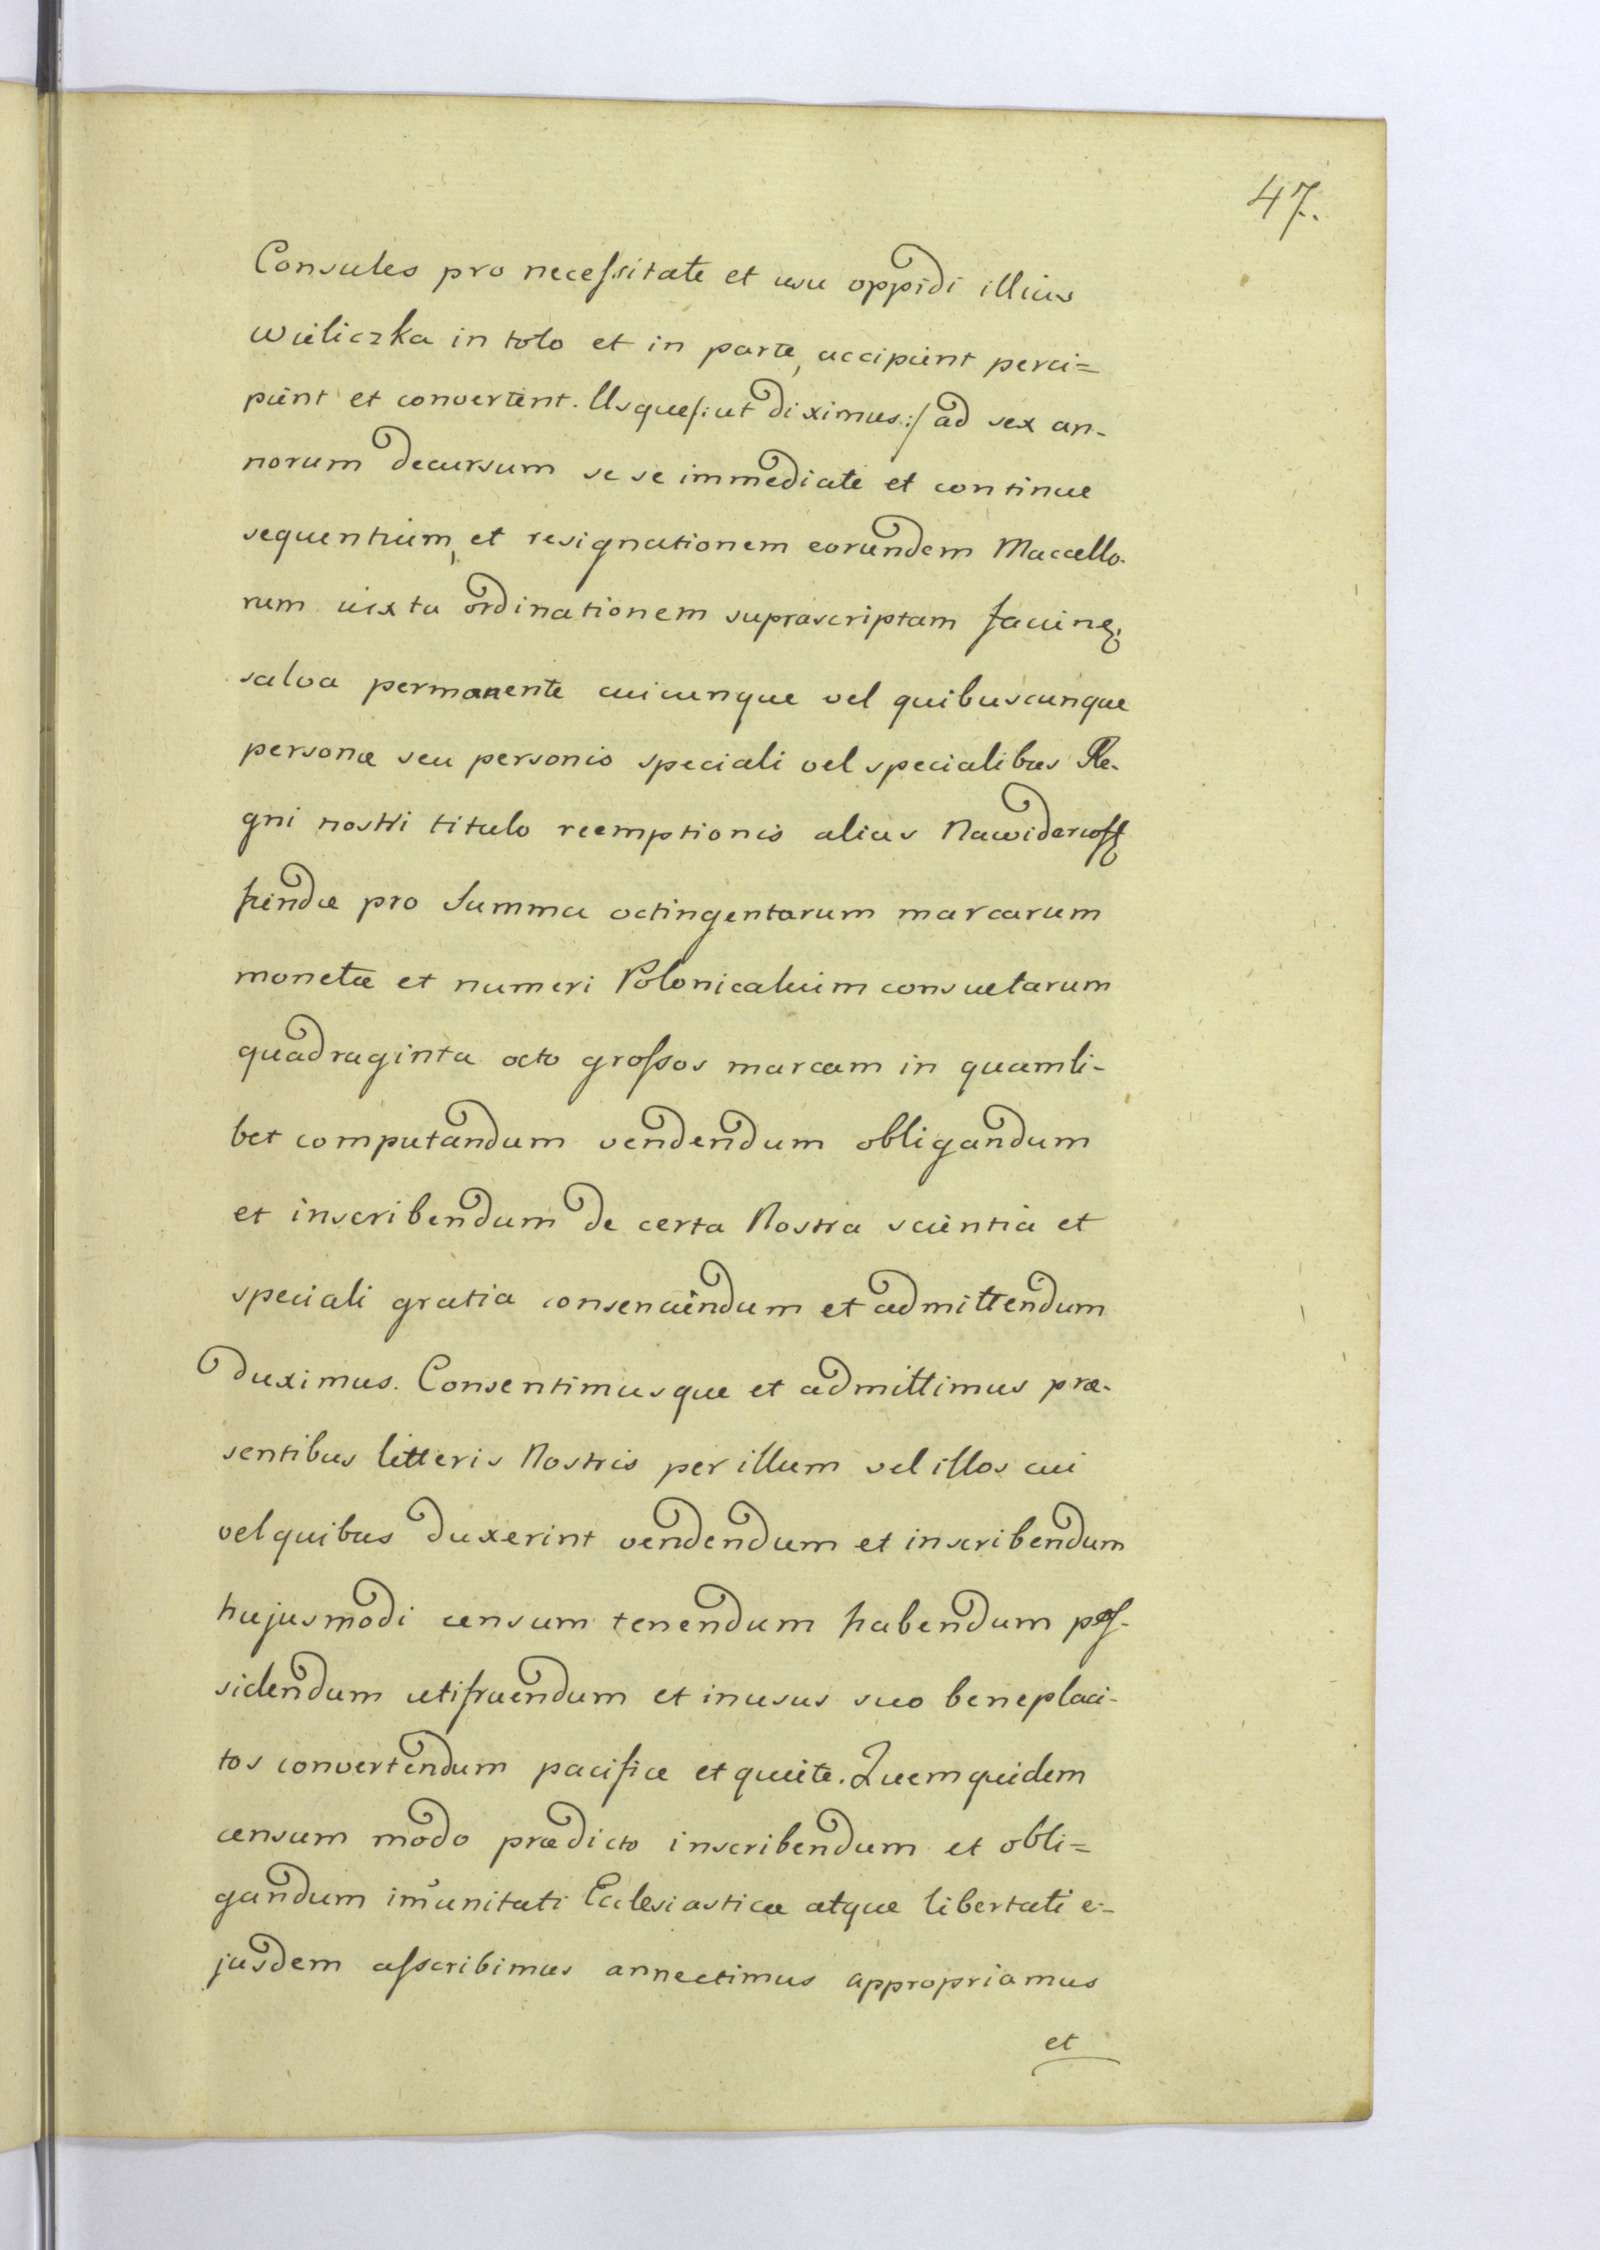 47.
Consules pro necessitate et usu oppidi illius
Wieliczka in toto et in parte, accipient perci=
pient et convertent. Usque /:ut diximus:/ ad sex an-
norum decursum se se immediate et continue
sequentium, et resignationem eorundem Maccello-
rum iuxta ordinationem suprascriptam
salva permanente cuicunque vel quibuscunque
personæ seu personis speciali vel specialibus Re-
gni nostri titulo reemptionis alias Nawiderkoff
hendæ pro Summa octingentarum marcarum
monetæ et numeri Polonicalium consuetarum
quadraginta octo grossos marcam in quamli-
bet computandum vendendum obligandum
et inscribendum de certa Nostra scientia et
speciali gratia consenciendum et admittendum
duximus. Consentimusque et admittimus præ-
sentibus litteris Nostris per illum vel illos cui
vel quibus duxerint vendendum et inscribendum
hujusmodi censum tenendum habendum pos-
sidendum utifruendum et inusus suo beneplaci-
tos convertendum pacifice et quiete. Quemquidem
censum modo prædicto inscribendum et obli=
gandum im̃unitati Ecclesiasticæ atque libertati e-
jusdem asscribimus annectimus appropriamus
et